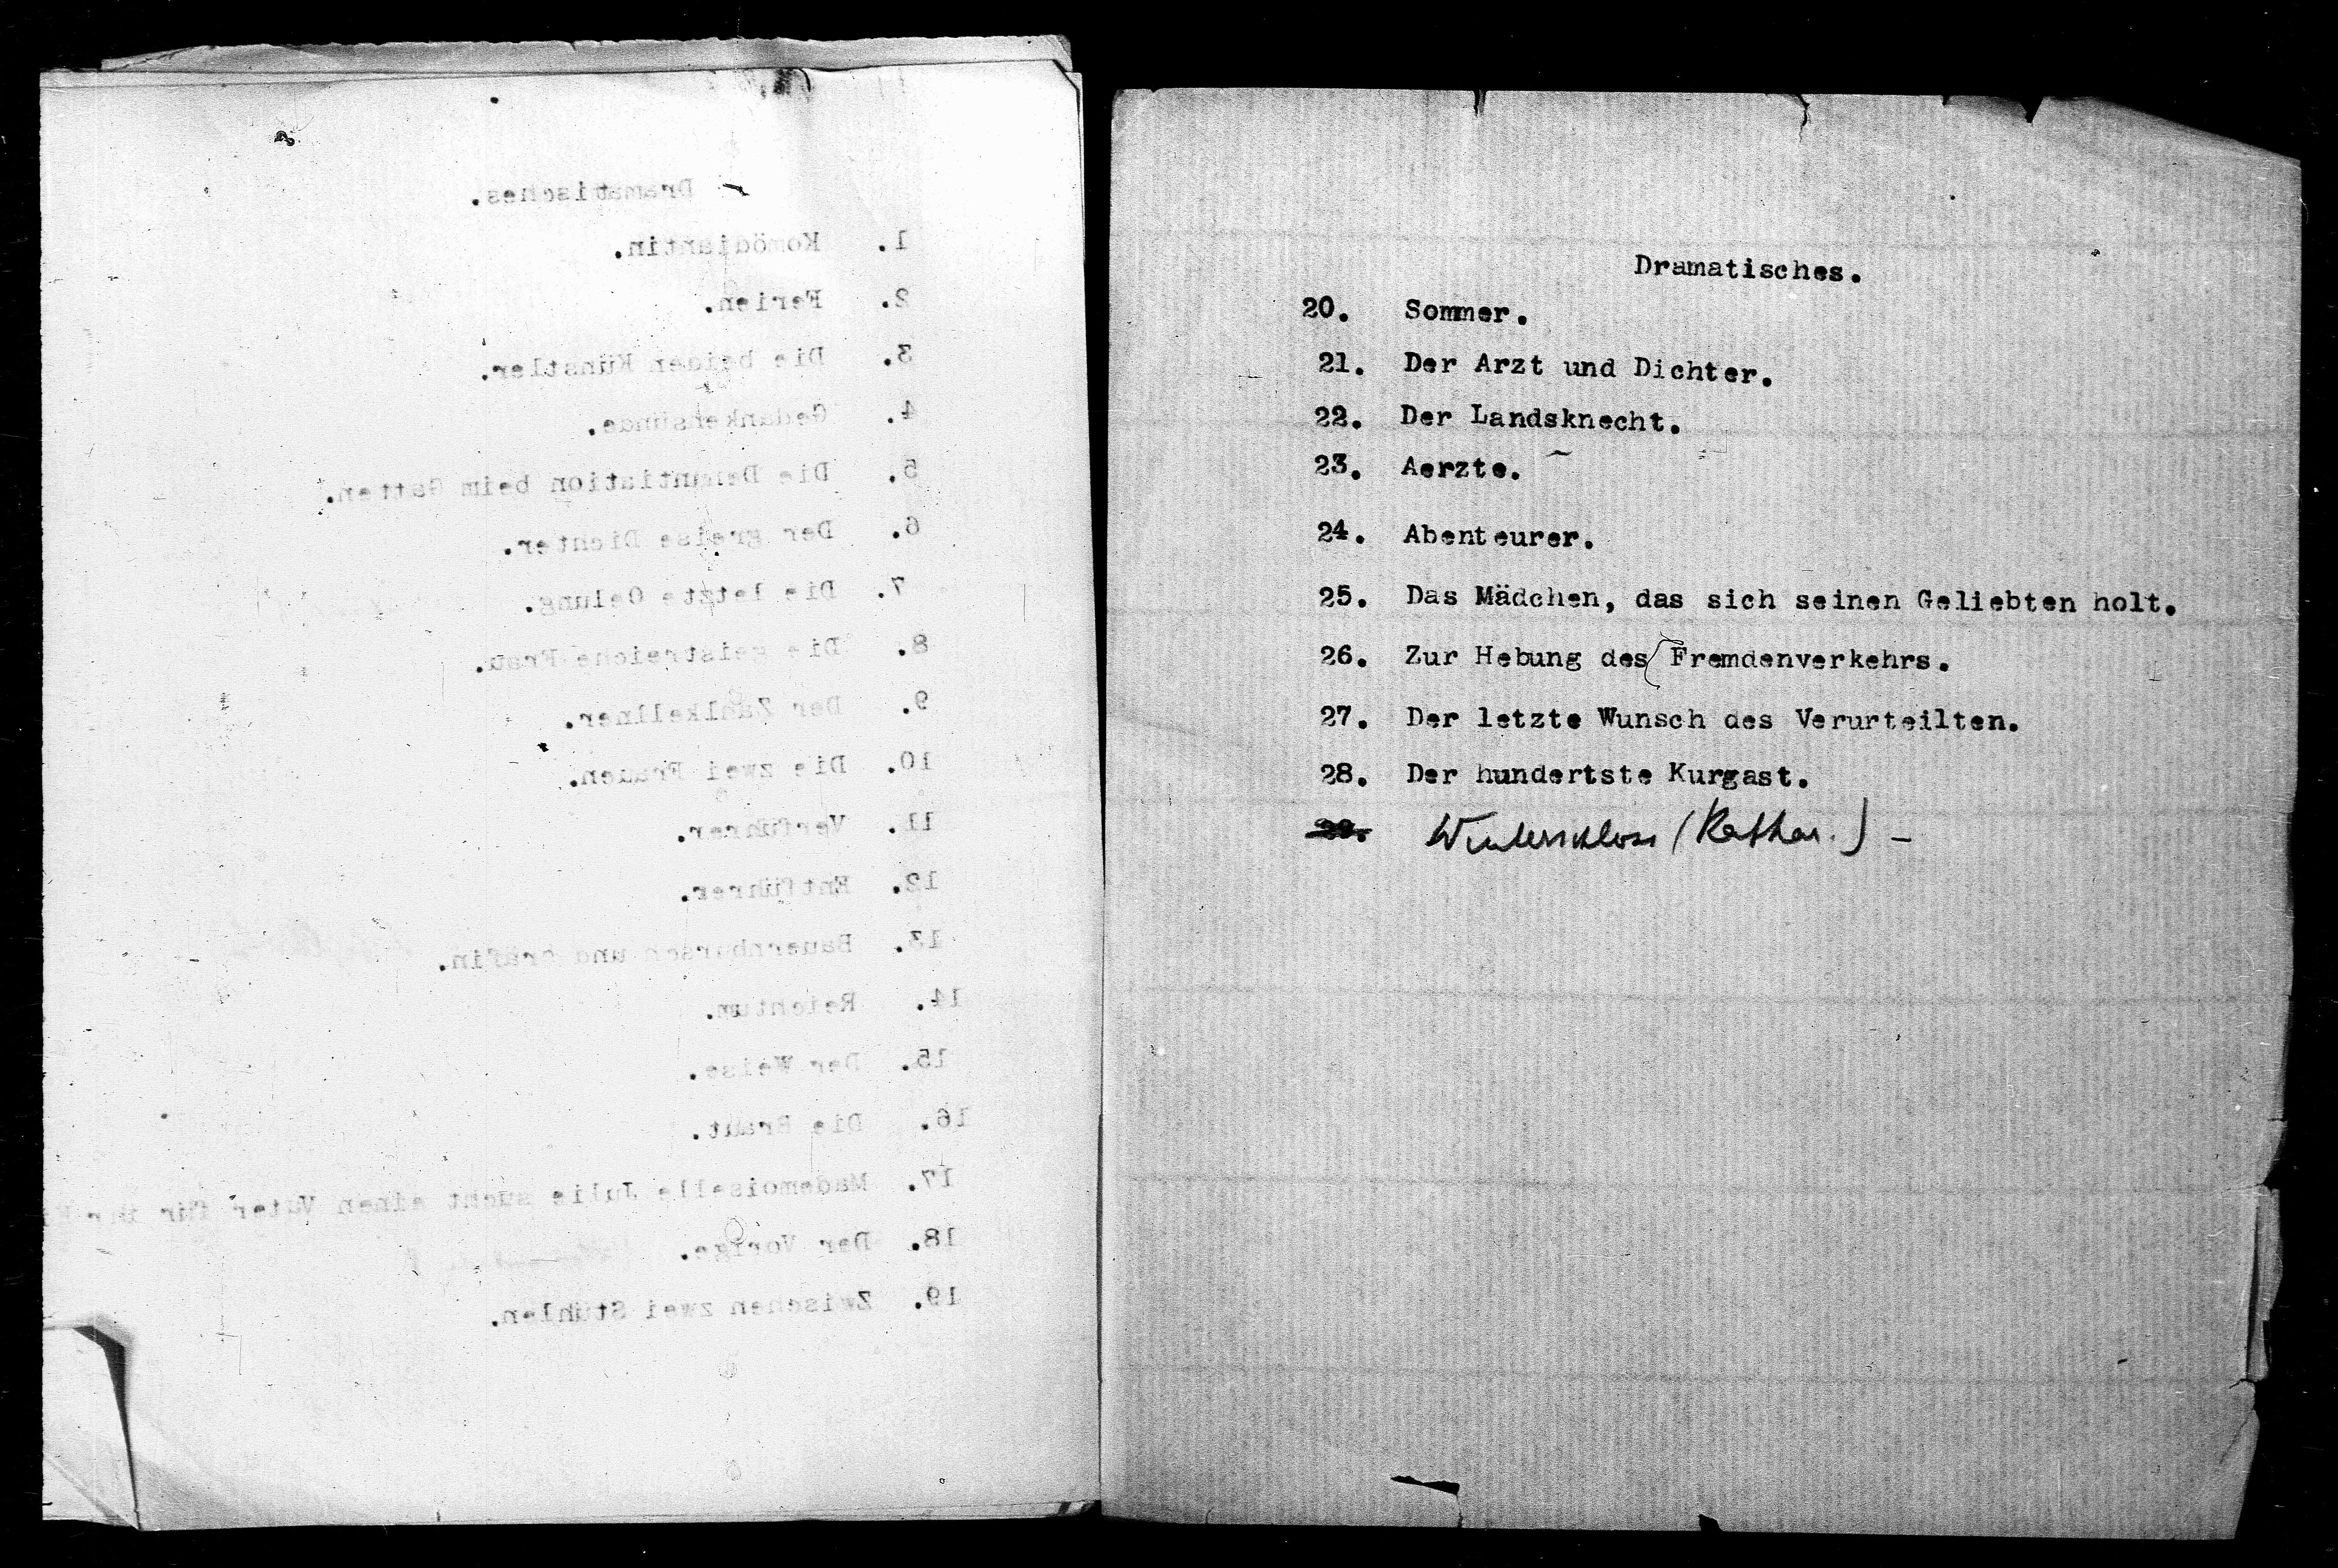 Dramatisches.
1. Komödiantin.
2. Ferien.
3. Die beiden Künstler.
4. Gedankensünde.
5. Die Denuntiation beim Gatten.
6. Der greise Dichter.
7. Die letzte Oelung.
8. Die geistreiche Frau.
9. Der Zahlkellner.
10. Die zwei Frauen.
11. Verführer.
12. Entführer.
13. Bauernbursch und Gräfin.
14. Reichtum.
15. Der Weise.
16. Die Braut.
17. Mademoiselle Julie sucht einen Vater für ihr
18. Der Vorige.
19. Zwischen zwei Stühlen.
Dramatisches.
20. Sommer.
21. Der Arzt und Dichter.
22. Der Landsknecht.
23. Aerzte.
24. Abenteurer.
25. Das Mädchen, das sich seinen Geliebten holt.
26. Zur Hebung des Fremdenverkehrs.
27. Der letzte Wunsch des Verurteilten.
28. Der hundertste Kurgast.
29. (Kathar.) –